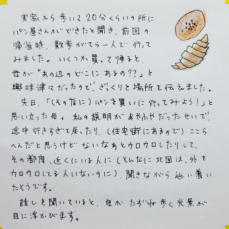 実家から歩いて20分くらいの所に
パン屋さんができたと聞き、前回の
帰省時、散歩がてら一人で行って
みました。いくつか買って帰ると、
母が"あの辺のどこにあるの??"と
興味津々だったので、ざっくりと場所を伝えました。
先日、「(その店に)パンを買いに行ってみよう!」と
思い立った母。私の説明があやふやだったせいで、
途中行きすぎて戻ったり、(住宅街にあるので)ここら
へんだと思うけどないなぁとウロウロしたりして、
その都度、近くにいる人に(とんなに北国は、外で
ウロウロしてる人いないのに)聞きながら辿り着い
たそうです。
話しを聞いていると、母がたずね歩く光景が
目に浮かびます。